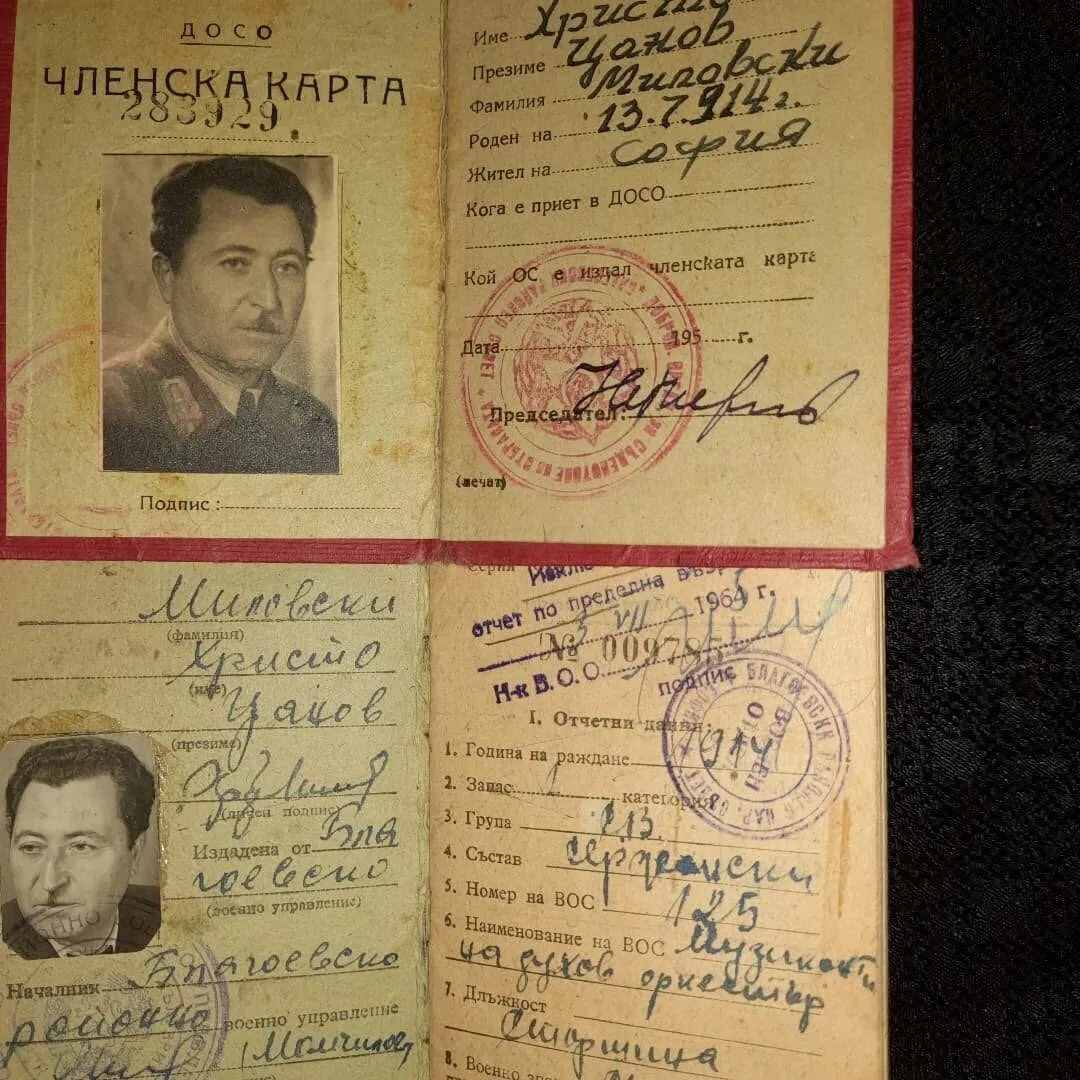 ДОСО
ЧЛЕНСКА КАРТА
283929
Подпис:
Име Христо
Презиме Цанов
Фамилия Миловски
Роден на 13.7.914 г.
Жител на София
Кога е приет в ДОСО
Кой ОС е издал членската карта
Дата 195 г.
Председател:
(печат)
Миловски
(фамилия)
Христо
(име)
Цанов
(презиме)
(личен подпис)
Издадена от Бла
гоевско
(военно управление)
Началник Благоевско
районно военно управление
Серия
отчет по пределна възр
3 VII 1965 г.
№ 009785
Н-к В.О.О. подпис
I. Отчетни данни:
1. Година на раждане 1914
2. Запас категория
3. Група
4. Състав сержански
5. Номер на ВОС 125
6. Наименование на ВОС Музикант
на духов оркестър
7. Длъжност
Старшина
8. Военно